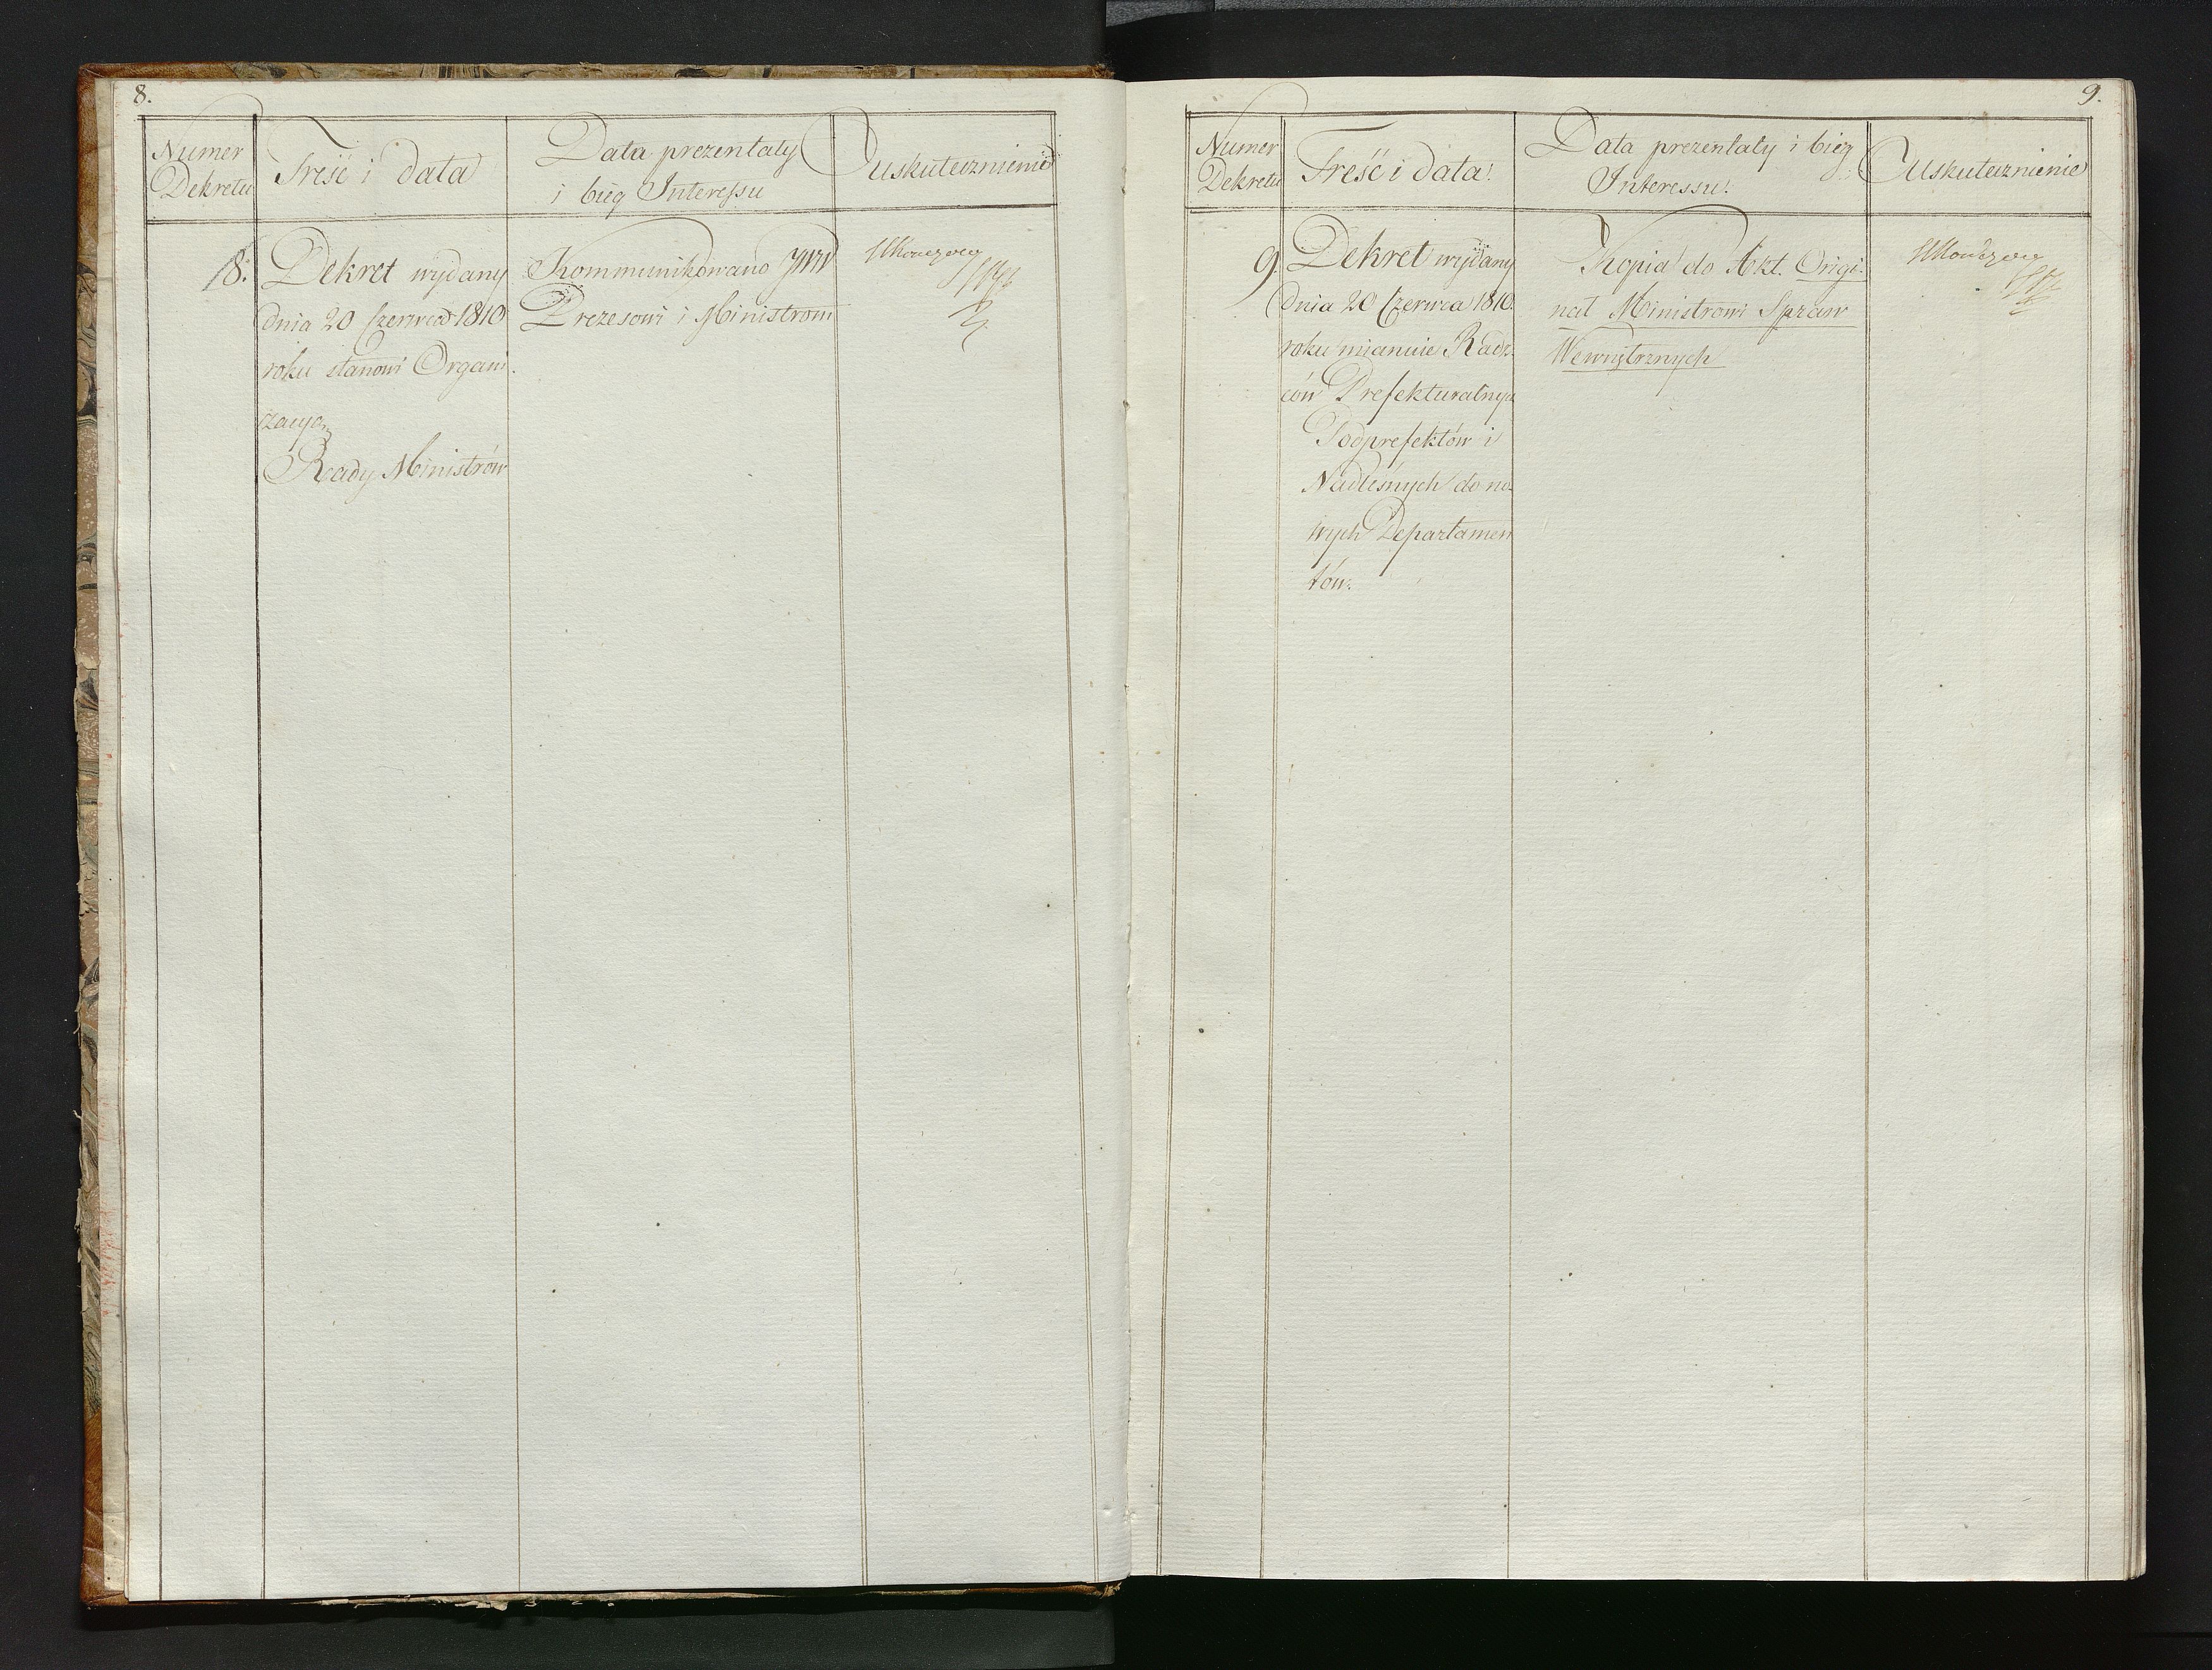 8.
Numer
Dekretu
Treść i data
Data prezentaty
i bieg Interessu
uskutecznienie
8.
Dekret wydany
dnia 20 Czerwca 1810
roku stanowi Organi
zacyą
Rady Ministrów
Kommunikowano JWW
Prezesowi i Ministrom
9.
Numer
Dekretu
Treść i data.
Data prezentaty i bieg
Interessu.
Uskutecznienie
9.
Dekret wydany
dnia 20 Czerwca 1810.
roku mianuie Radz-
ców Prefekturalnych
Podprefektów i
Nadleśnych do no-
wych Departamen
tów.
Kopia do Akt. Origi-
nał Ministrowi Spraw
Wewnętrznych